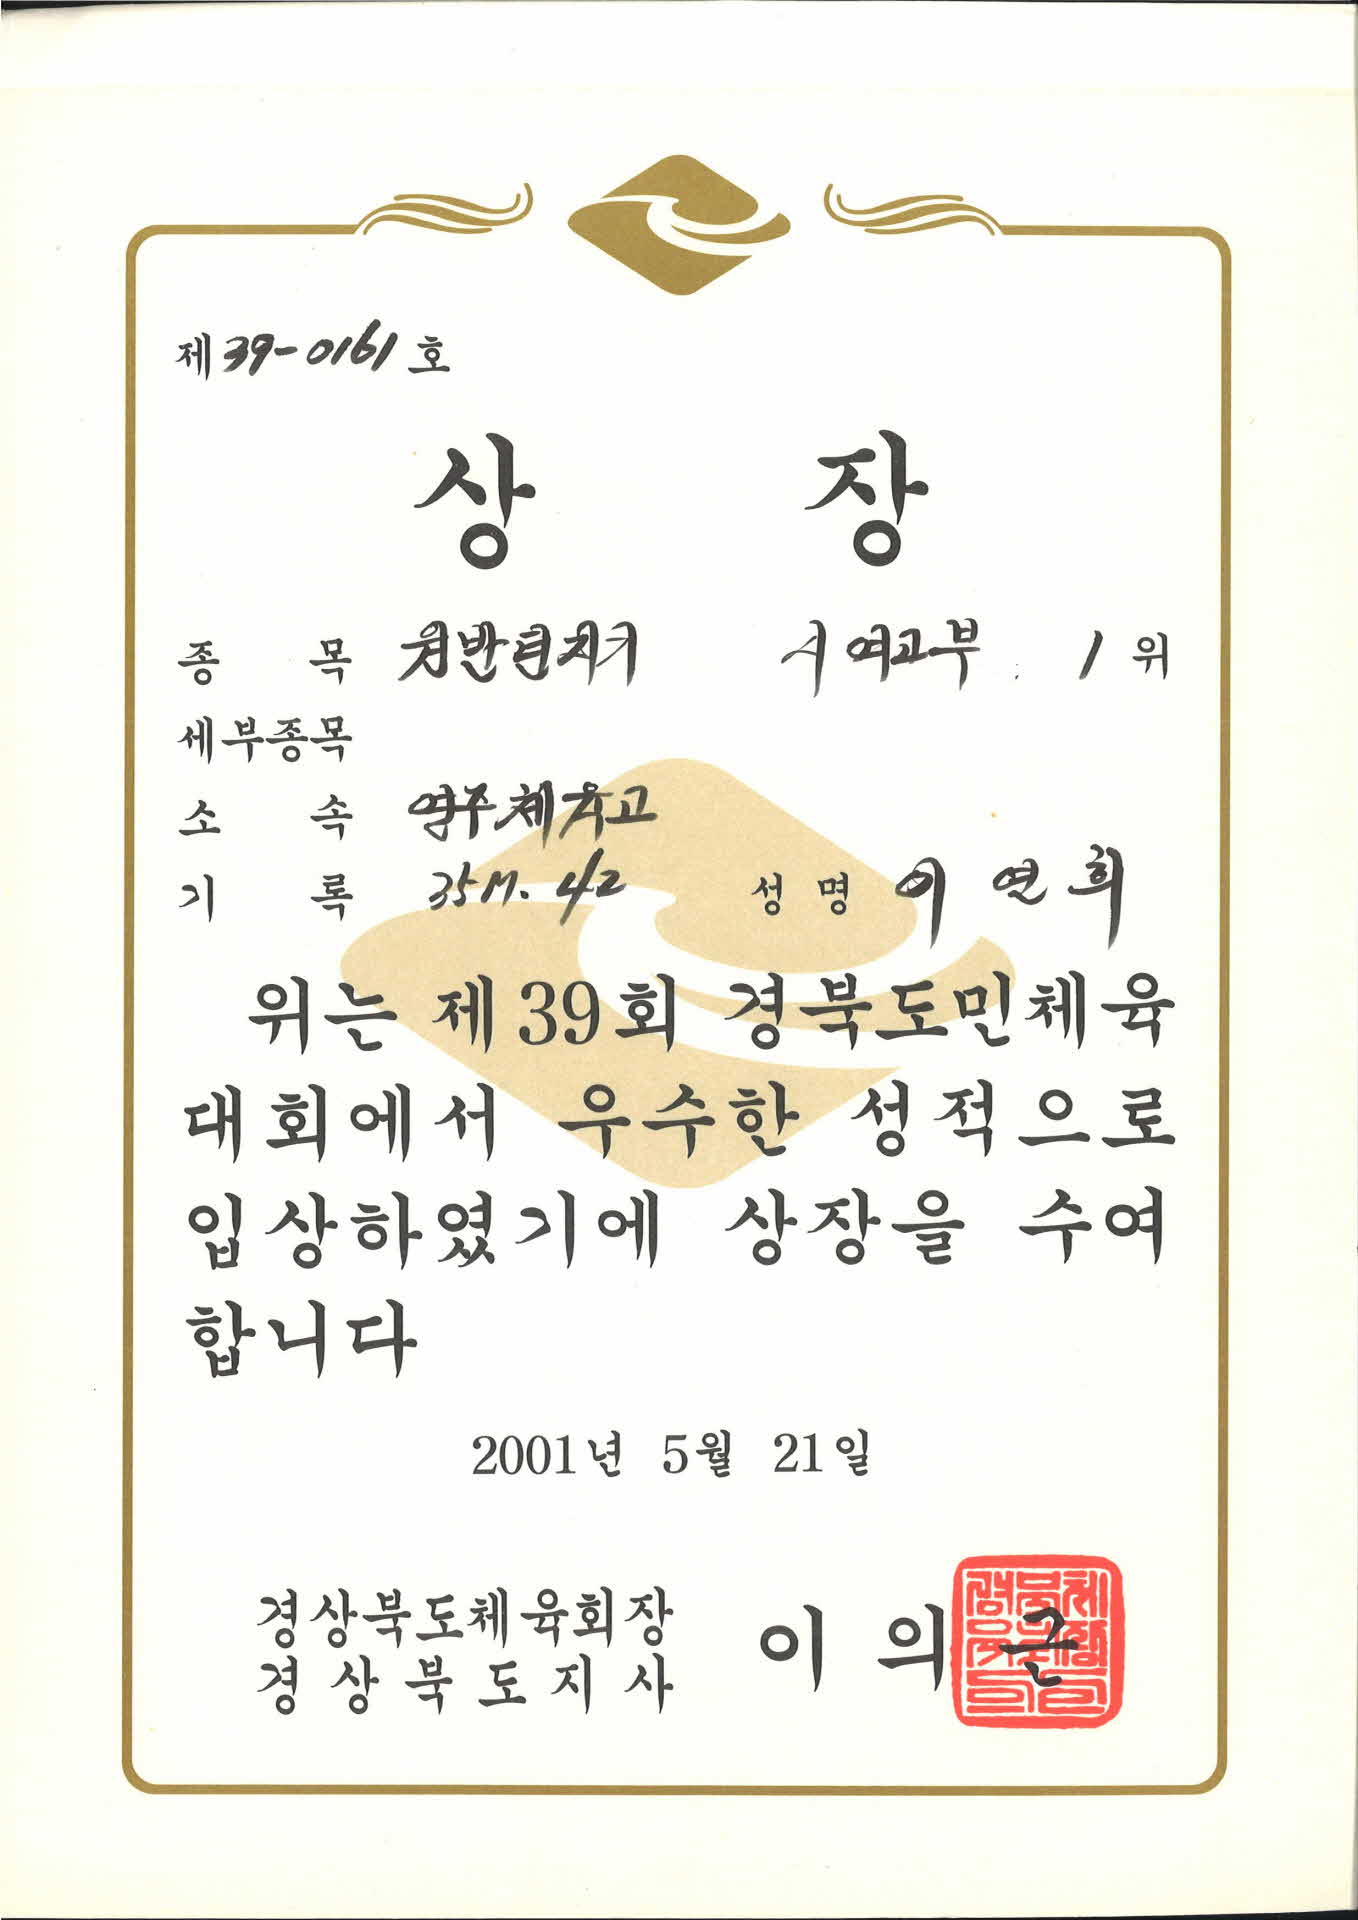 제 39-0161 호
상 장
종 목 원반던지기 시 여고부 1 위
세부종목
소 속 영주체육고
기 록 35M. 42 성 명 이연희
위는 제39회 경북도민체육
대회에서 우수한 성적으로
입상하였기에 상장을 수여
합니다
2001년 5월 21일
경상북도체육회장
경상북도지사 이의근